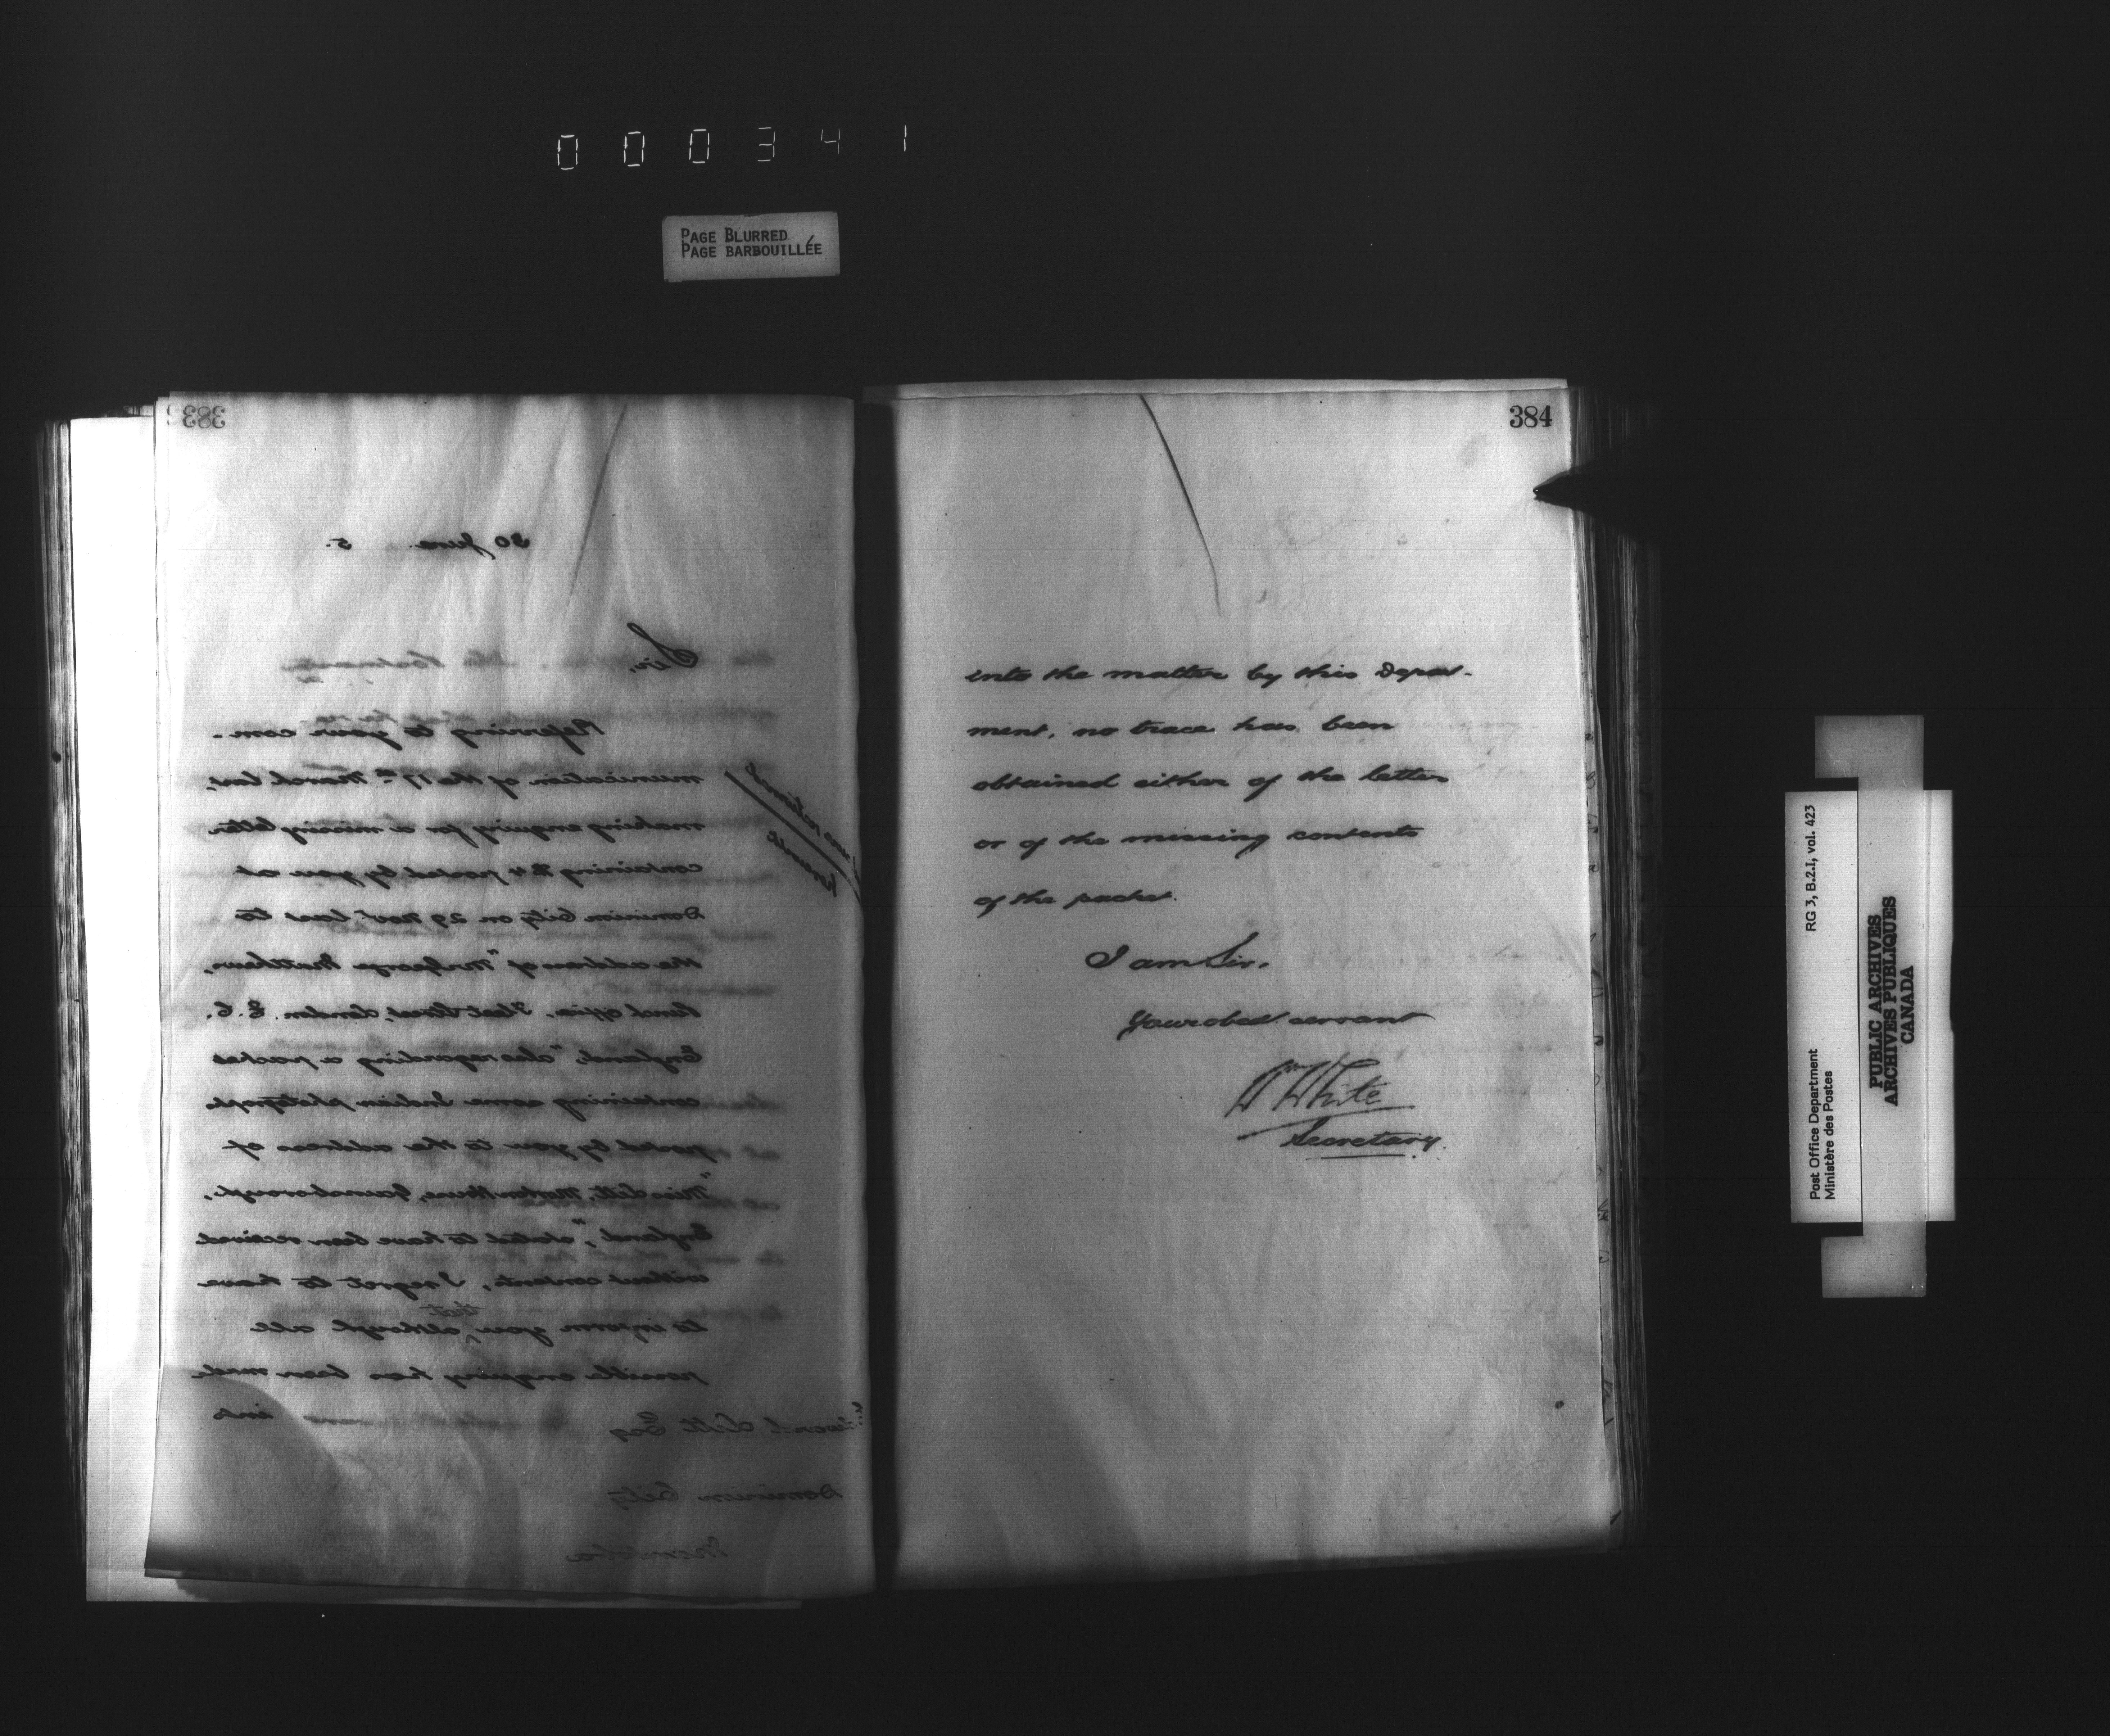 000341
PAGE BLURRED
PAGE BARBOUILLÉE
383
30 June 5.
Sir,
Referring to your com-
munication of the 17th March last,
making enquiry for a missing letter
containing £4 posted by you at
Dominion City on 29 Novr last to
the address of "Mr George Matthews,
Land office, Fleet Street, London E.C.
England," also regarding a packet
containing some Indian photographs
posted by you to the address of
"Miss Litt, Morton House, Gainsborough,
England," stated to have been received
without contents, I regret to have
to inform you that although all
possible enquiry has been made
into
Litt Esq
Dominion City
Manitoba
384
into the matter by this Depart-
ment, no trace has been
obtained either of the letter
or of the missing contents
of the packet.
I am Sir,
Your obedt servant
Wm White
Secretary.
Post Office Department
Ministère des Postes
RG 3, B.2.I, vol. 423
PUBLIC ARCHIVES
ARCHIVES PUBLIQUES
CANADA